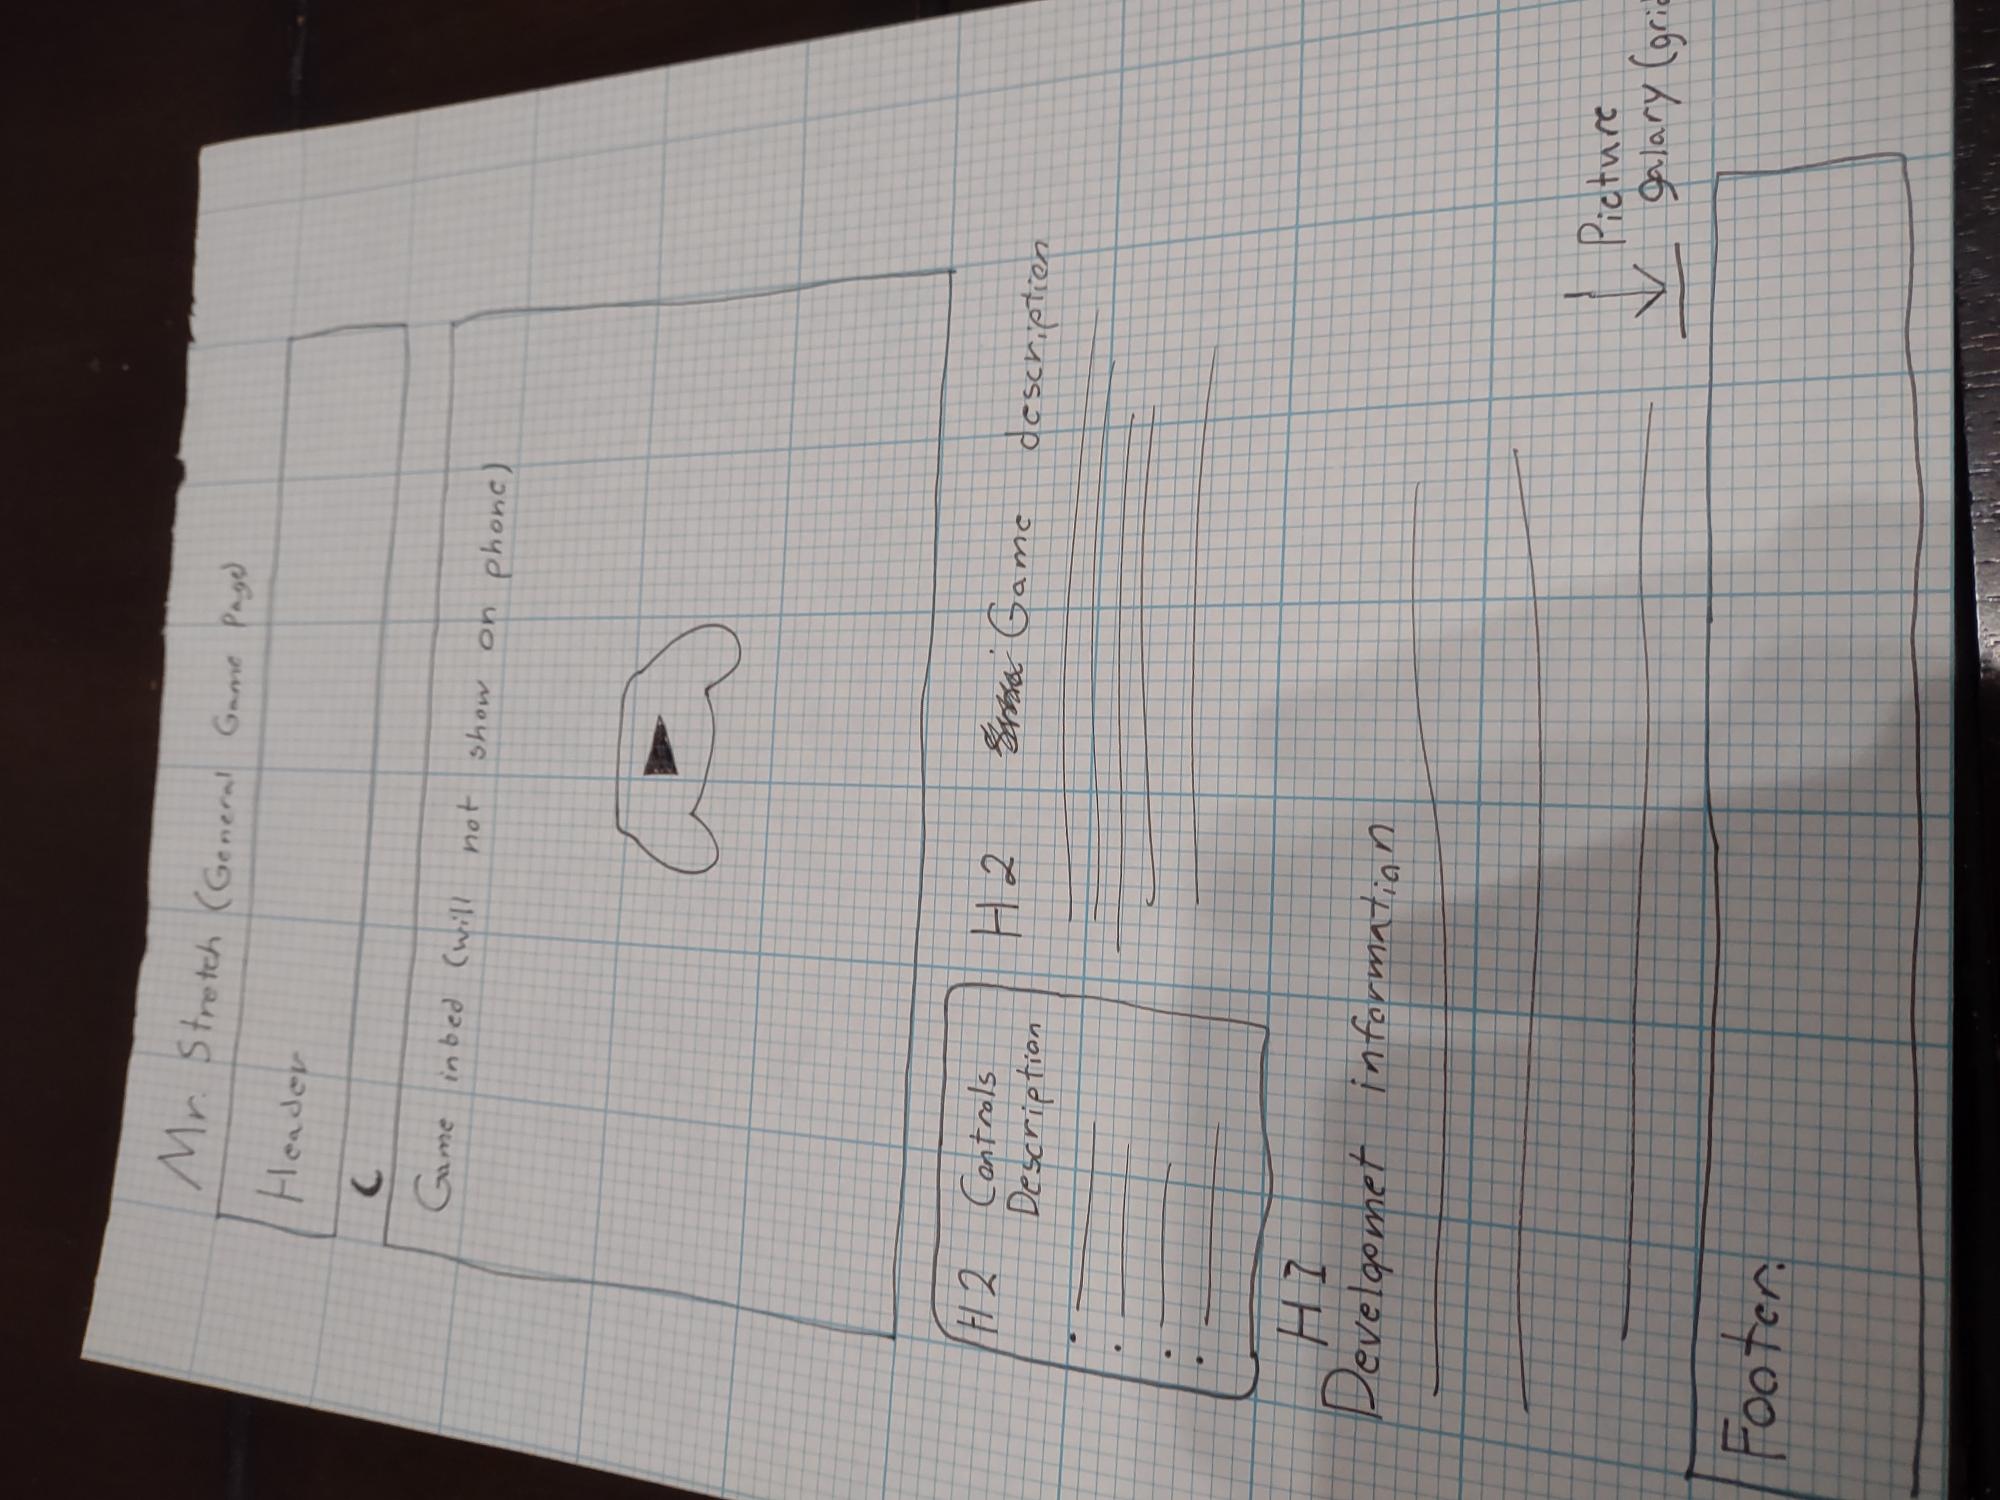 Mr. Stretch (General Game Page)
Header
Game inbed (will not show on phone)
H2 Controls
Description
H2 Game description
H1
Developmet information
Picture
galary (grid
Footer.